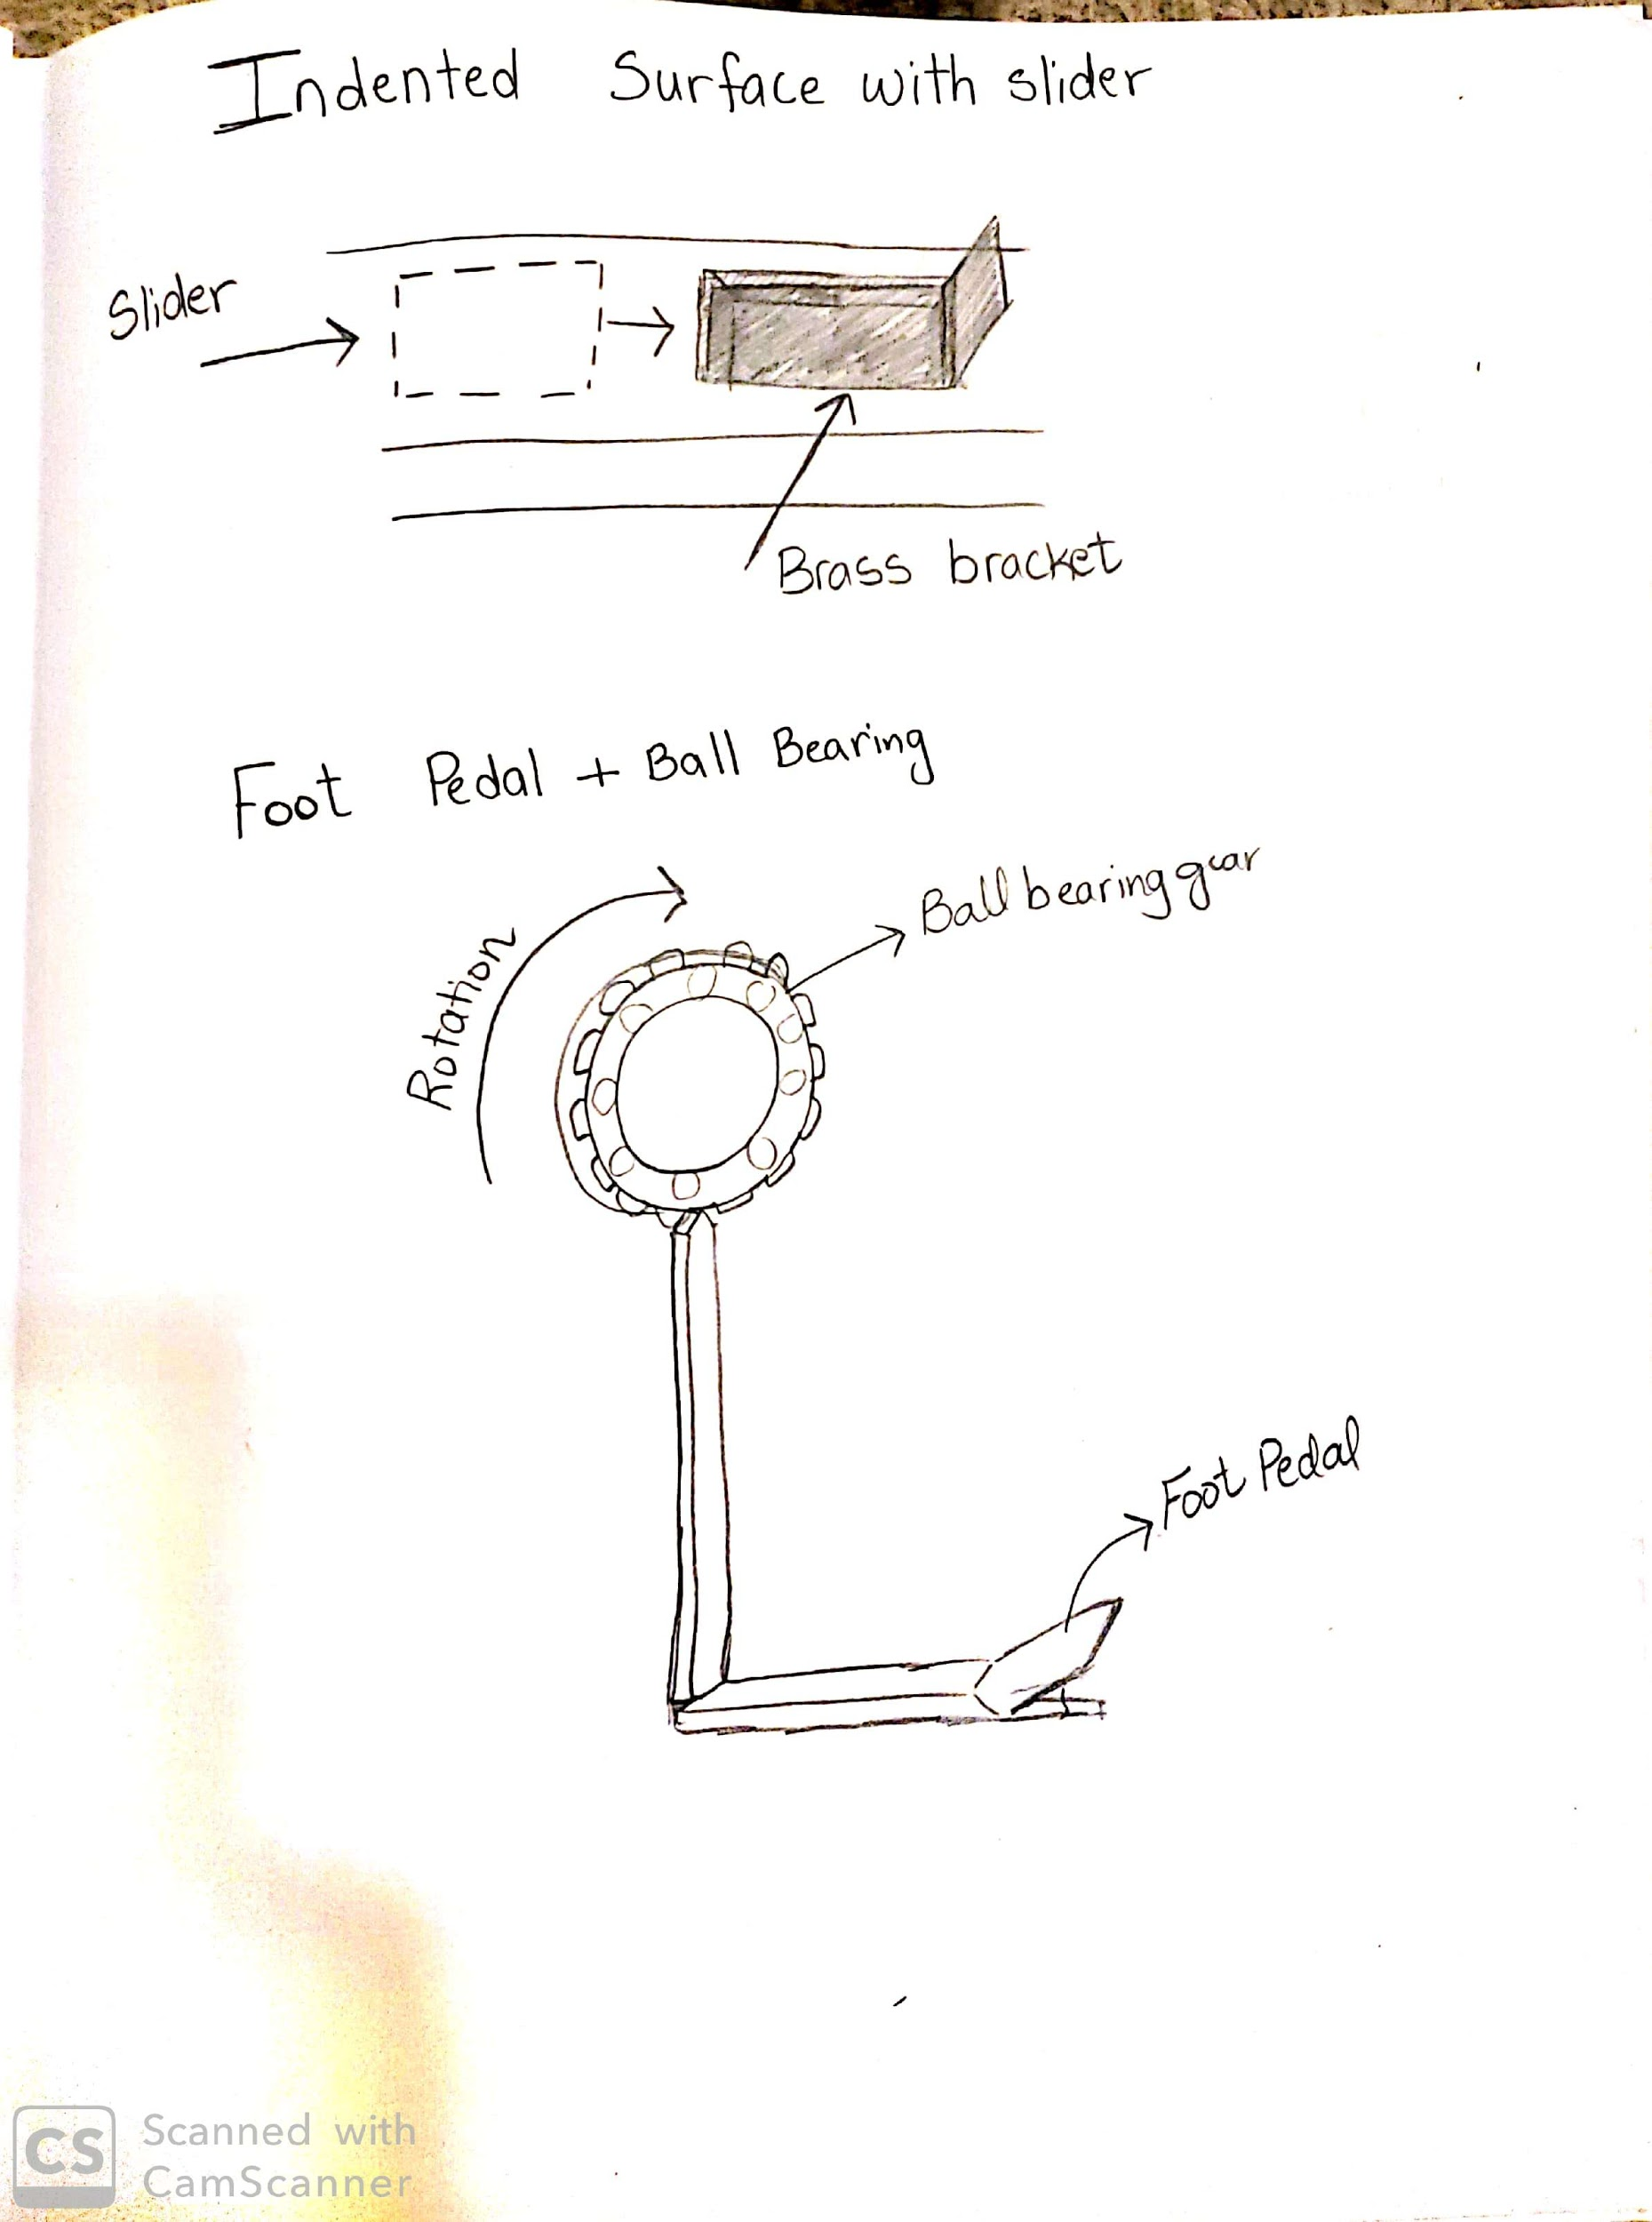 Indented Surface with slider
Slider
Brass bracket
Foot Pedal + Ball Bearing
Ball bearing gear
Rotation
Foot Pedal
CS
Scanned with
CamScanner